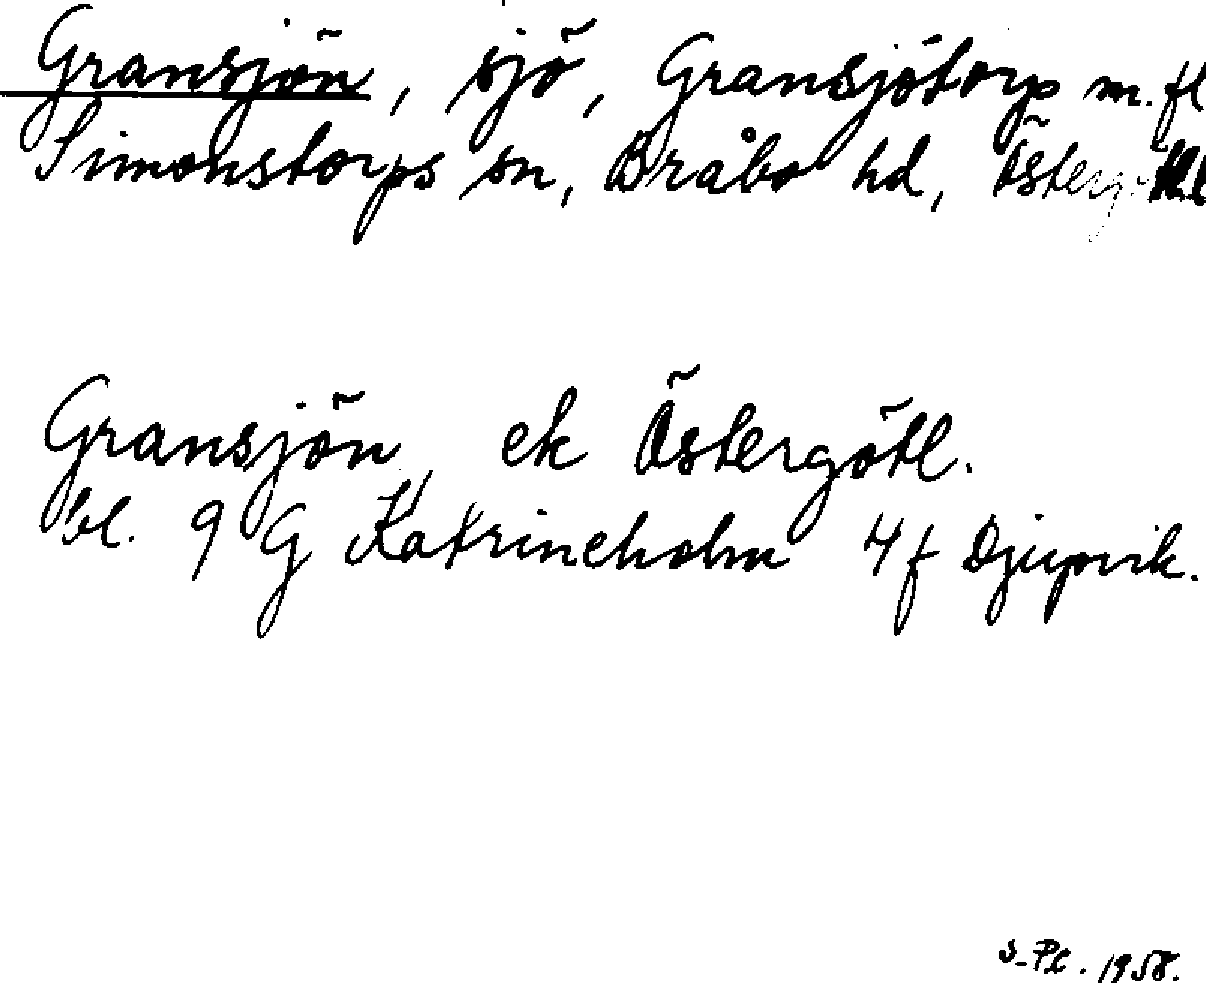 Gransjön, sjö, Gransjötorp m. fl
Simonstorps sn, Bråbo hd, Östergötl
Gransjön, ek Östergötl.
bl. 9 G Katrineholm 4f Djupvik.
1958.